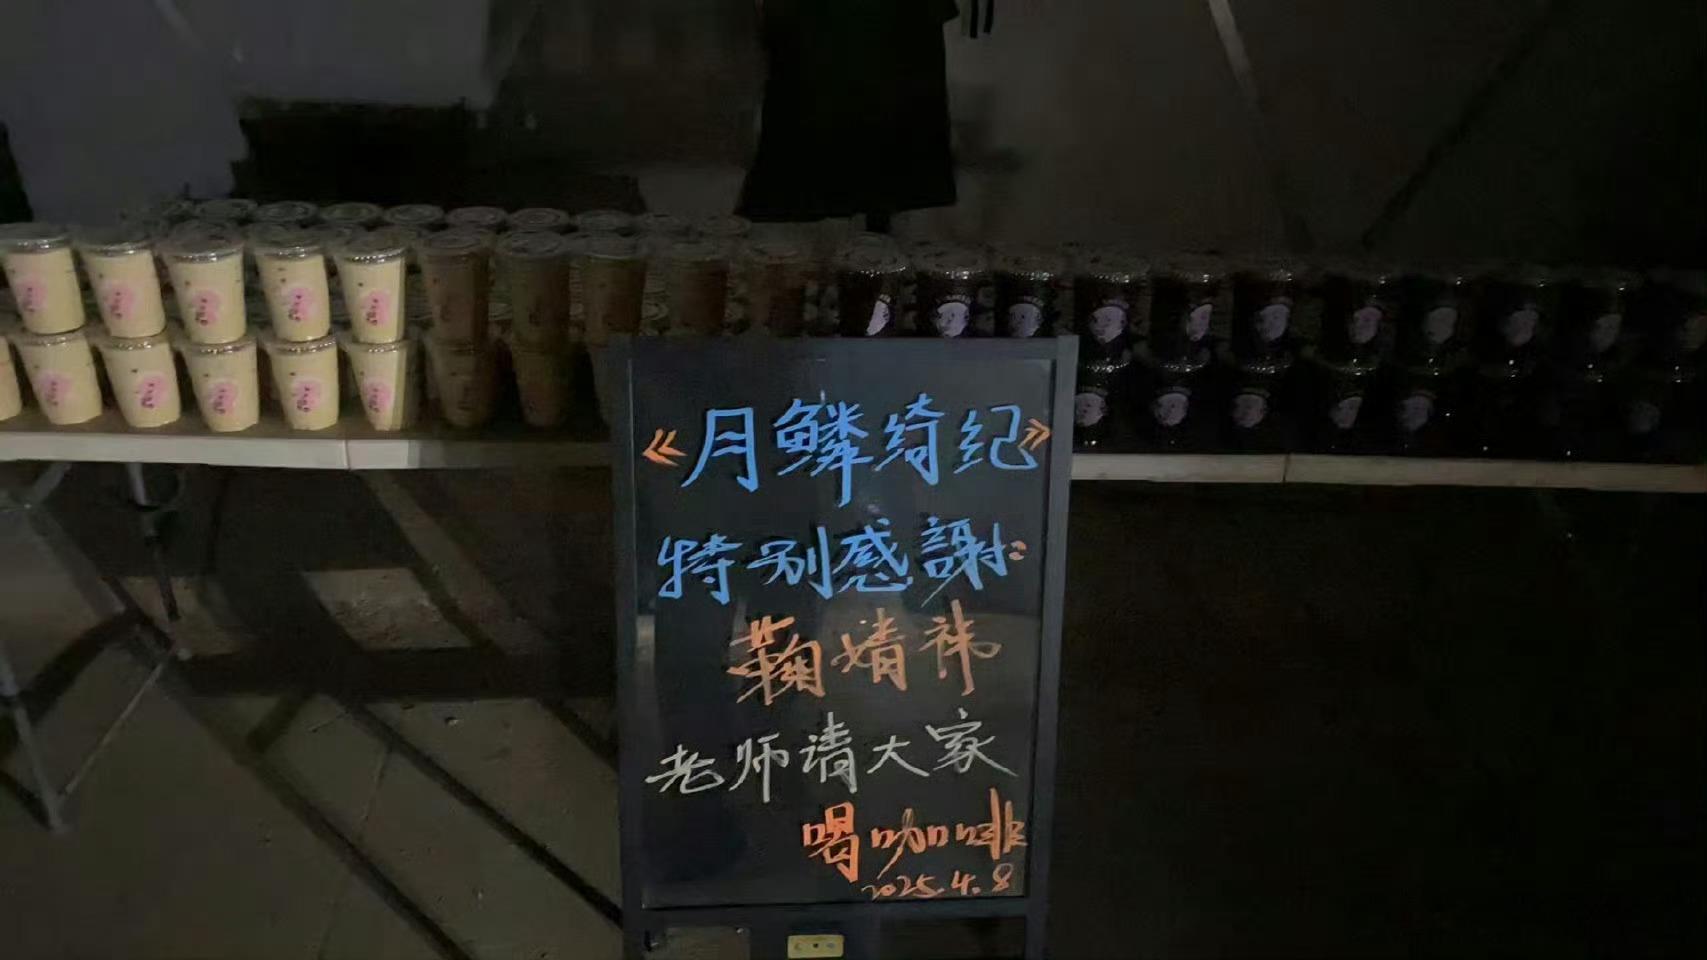 《月鳞绮纪》
特别感謝:
鞠婧祎
老师请大家
喝咖啡
2025.4.8